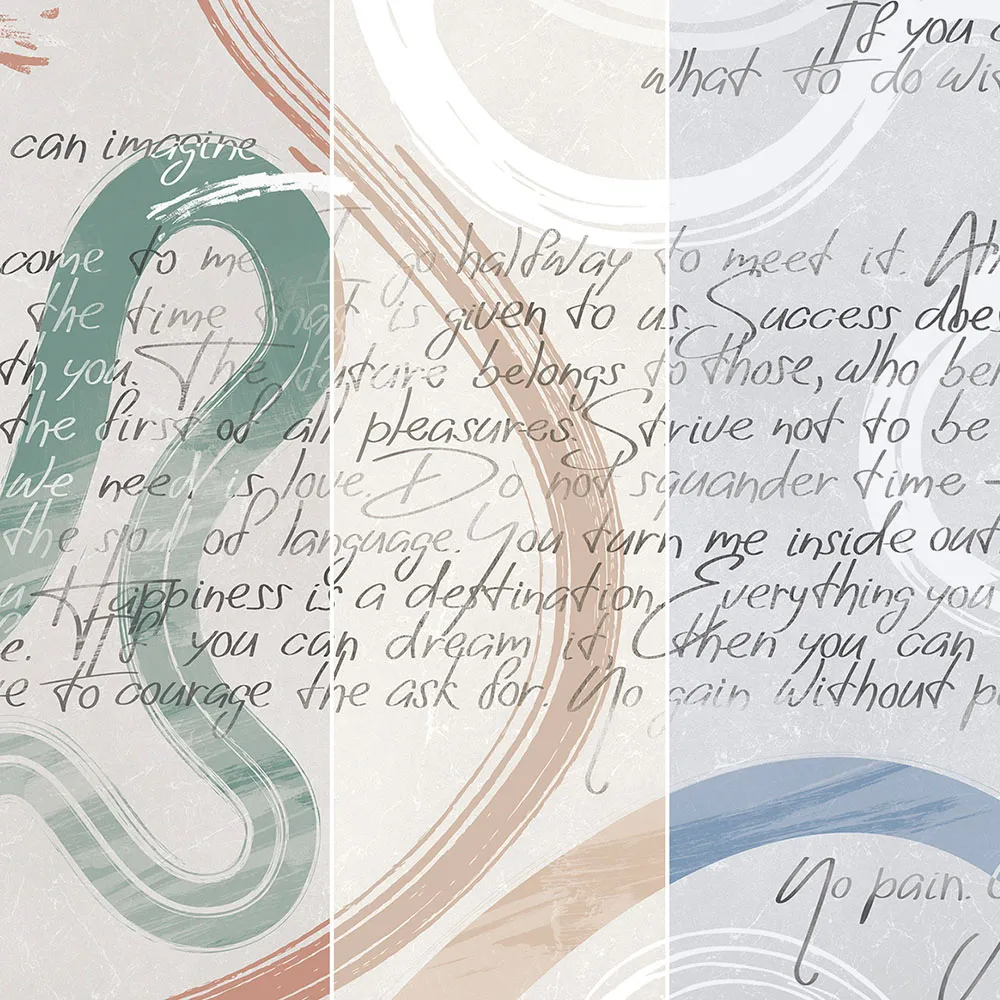 If you
what to do wit
can imagine
come to me I go halfway to meet it. Ath
the time that is given to us. Success does
th you. The future belongs to those, who bel
the first of all pleasures. Strive not to be
we need is love. Do not squander time -
the soul of language. You turn me inside out
Happiness is a destination. Everything you
e. If you can dream it, then you can
e to courage the ask for. No gain without p
No pain.